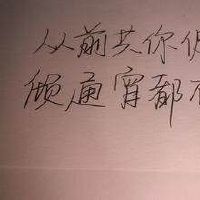 从前共你促
倾通宵都不